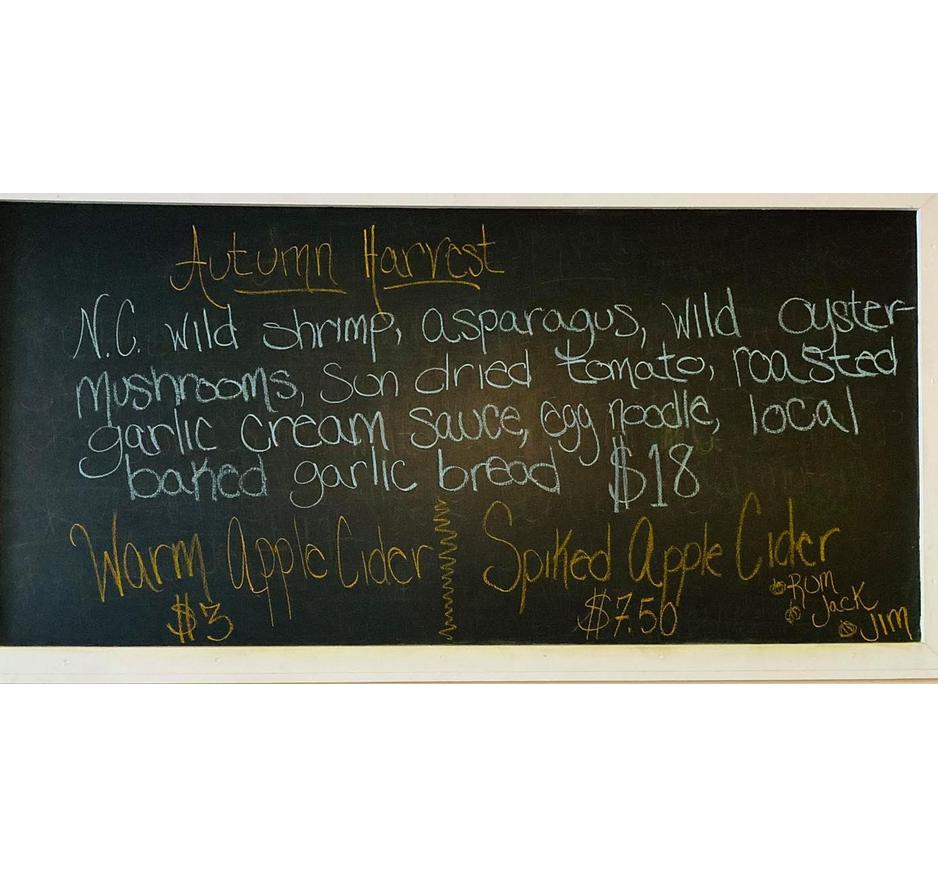 Autumn Harvest
N.C. wild shrimp, asparagus, wild oyster-
mushrooms, sun dried tomato, roasted
garlic cream sauce, egg noodle, local
baked garlic bread $18
Warm Apple Cider
$3
Spiked Apple Cider
$7.50
Rum
Jack
Jim